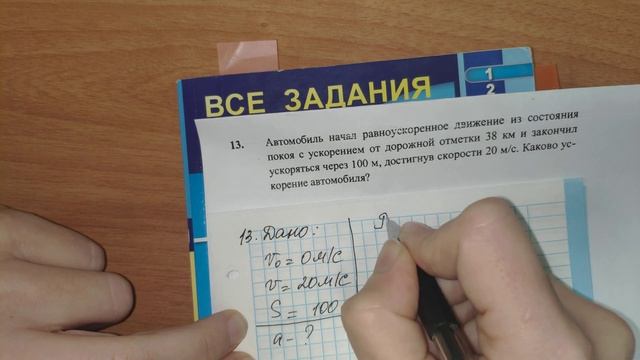 ВСЕ ЗАДАНИЯ
1
2
13. Автомобиль начал равноускоренное движение из состояния
покоя с ускорением от дорожной отметки 38 км и закончил
ускоряться через 100 м, достигнув скорости 20 м/с. Каково ус-
корение автомобиля?
13. Дано:
V₀ = 0 м/с
v = 20 м/с
S = 100
a - ?